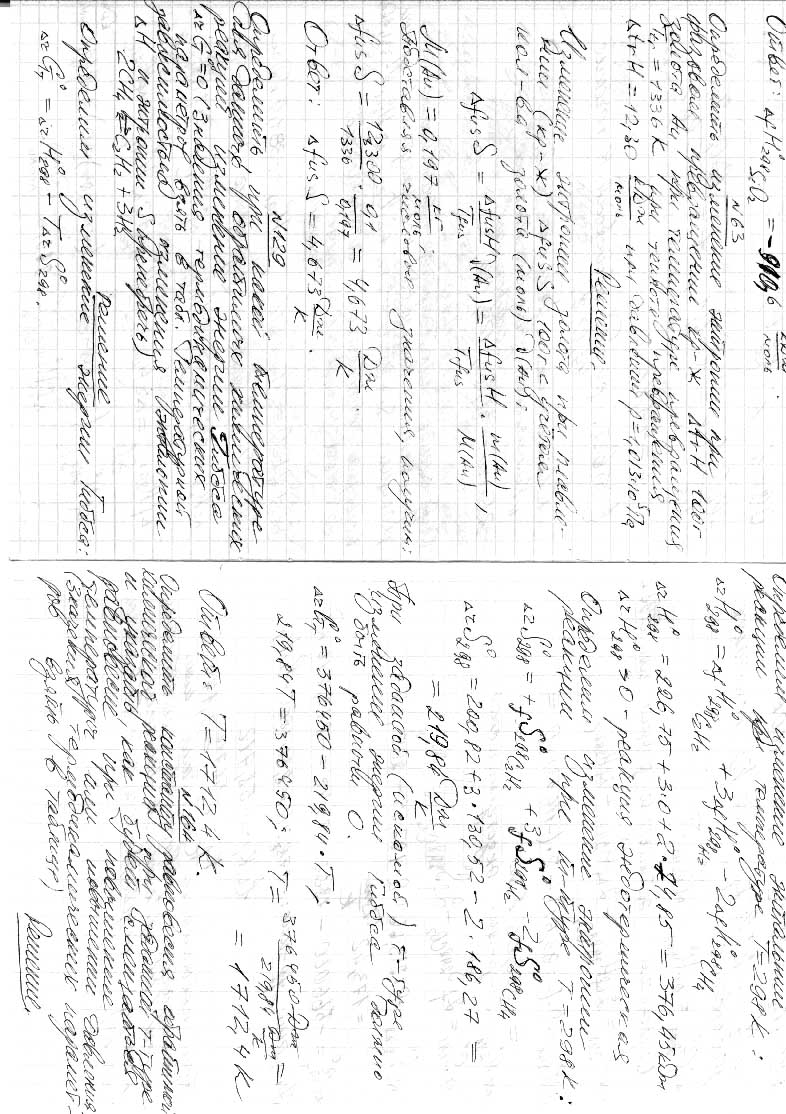 Ответ: ΔfH°298 SO2 = - 6 кДж/моль.
N63
Определить изменение энтропии при
фазовом превращении кр-ж ΔtrH 100г
золота Au при температуре превращения
Ttr = 1336 К при теплоте превращения
ΔtrH = 12,30 кДж/моль при давлении p=1,013·10⁵ Па
Решение.
Изменение энтропии золота при плавле-
нии (кр-ж) ΔfusS 100г с учётом
кол-ва золота (моль) ν(Au):
ΔfusS = ΔfusH/Tfus ν(Au) = ΔfusH/Tfus · m(Au)/M(Au),
M(Au) = 0,197 кг/моль,
Подставляя числовые значения, получим:
ΔfusS = 12300/1336 · 0,1/0,197 = 4,673 Дж/К
Ответ: ΔfusS = 4,673 Дж/К.
N129
Определить при какой температуре
(для данных) обратимых химических
реакций изменение энергии Гиббса
ΔrG°T=0 (значения термодинамических
параметров взять в таб. Температурной
зависимостью изменения энтальпии
ΔH и энтропии S пренебречь)
2CH4 ⇄ C2H2 + 3H2
Решение
Определим изменение энергии Гиббса:
ΔrG°T = ΔrH°298 - TΔrS°298.
Определим изменение энтальпии
реакции при температуре T=298К:
ΔrH°298 = ΔfH°298 C2H2 + 3ΔfH°298 H2 - 2ΔfH°298 CH4
ΔrH°298 = 226,75 + 3·0 + 2·74,85 = 376,45 кДж
ΔrH°298 > 0 - реакция эндотермическая
Определим изменение энтропии
реакции при т-туре T=298К:
ΔrS°298 = + fS°298 C2H2 + 3fS°298 H2 - 2fS°298 CH4 =
ΔrS°298 = 200,82+3·130,52 - 2·186,27 =
= 219,84 Дж/К
При заданной (искомой) т-туре
изменение энергии Гиббса должно
быть равным 0.
ΔrG°T = 376450 - 219,84·T;
219,84T = 376450; T = 376450 Дж / 219,84 Дж/К =
= 1712,4 К
Ответ: T=1712,4 К.
N164
Определить константу равновесия обратимой
химической реакции при заданной т-туре
и указать как будет смещаться
равновесие при повышение
температуры или повышение давления
(значения термодинамических парамет-
ров взять в таблице)
Решение.